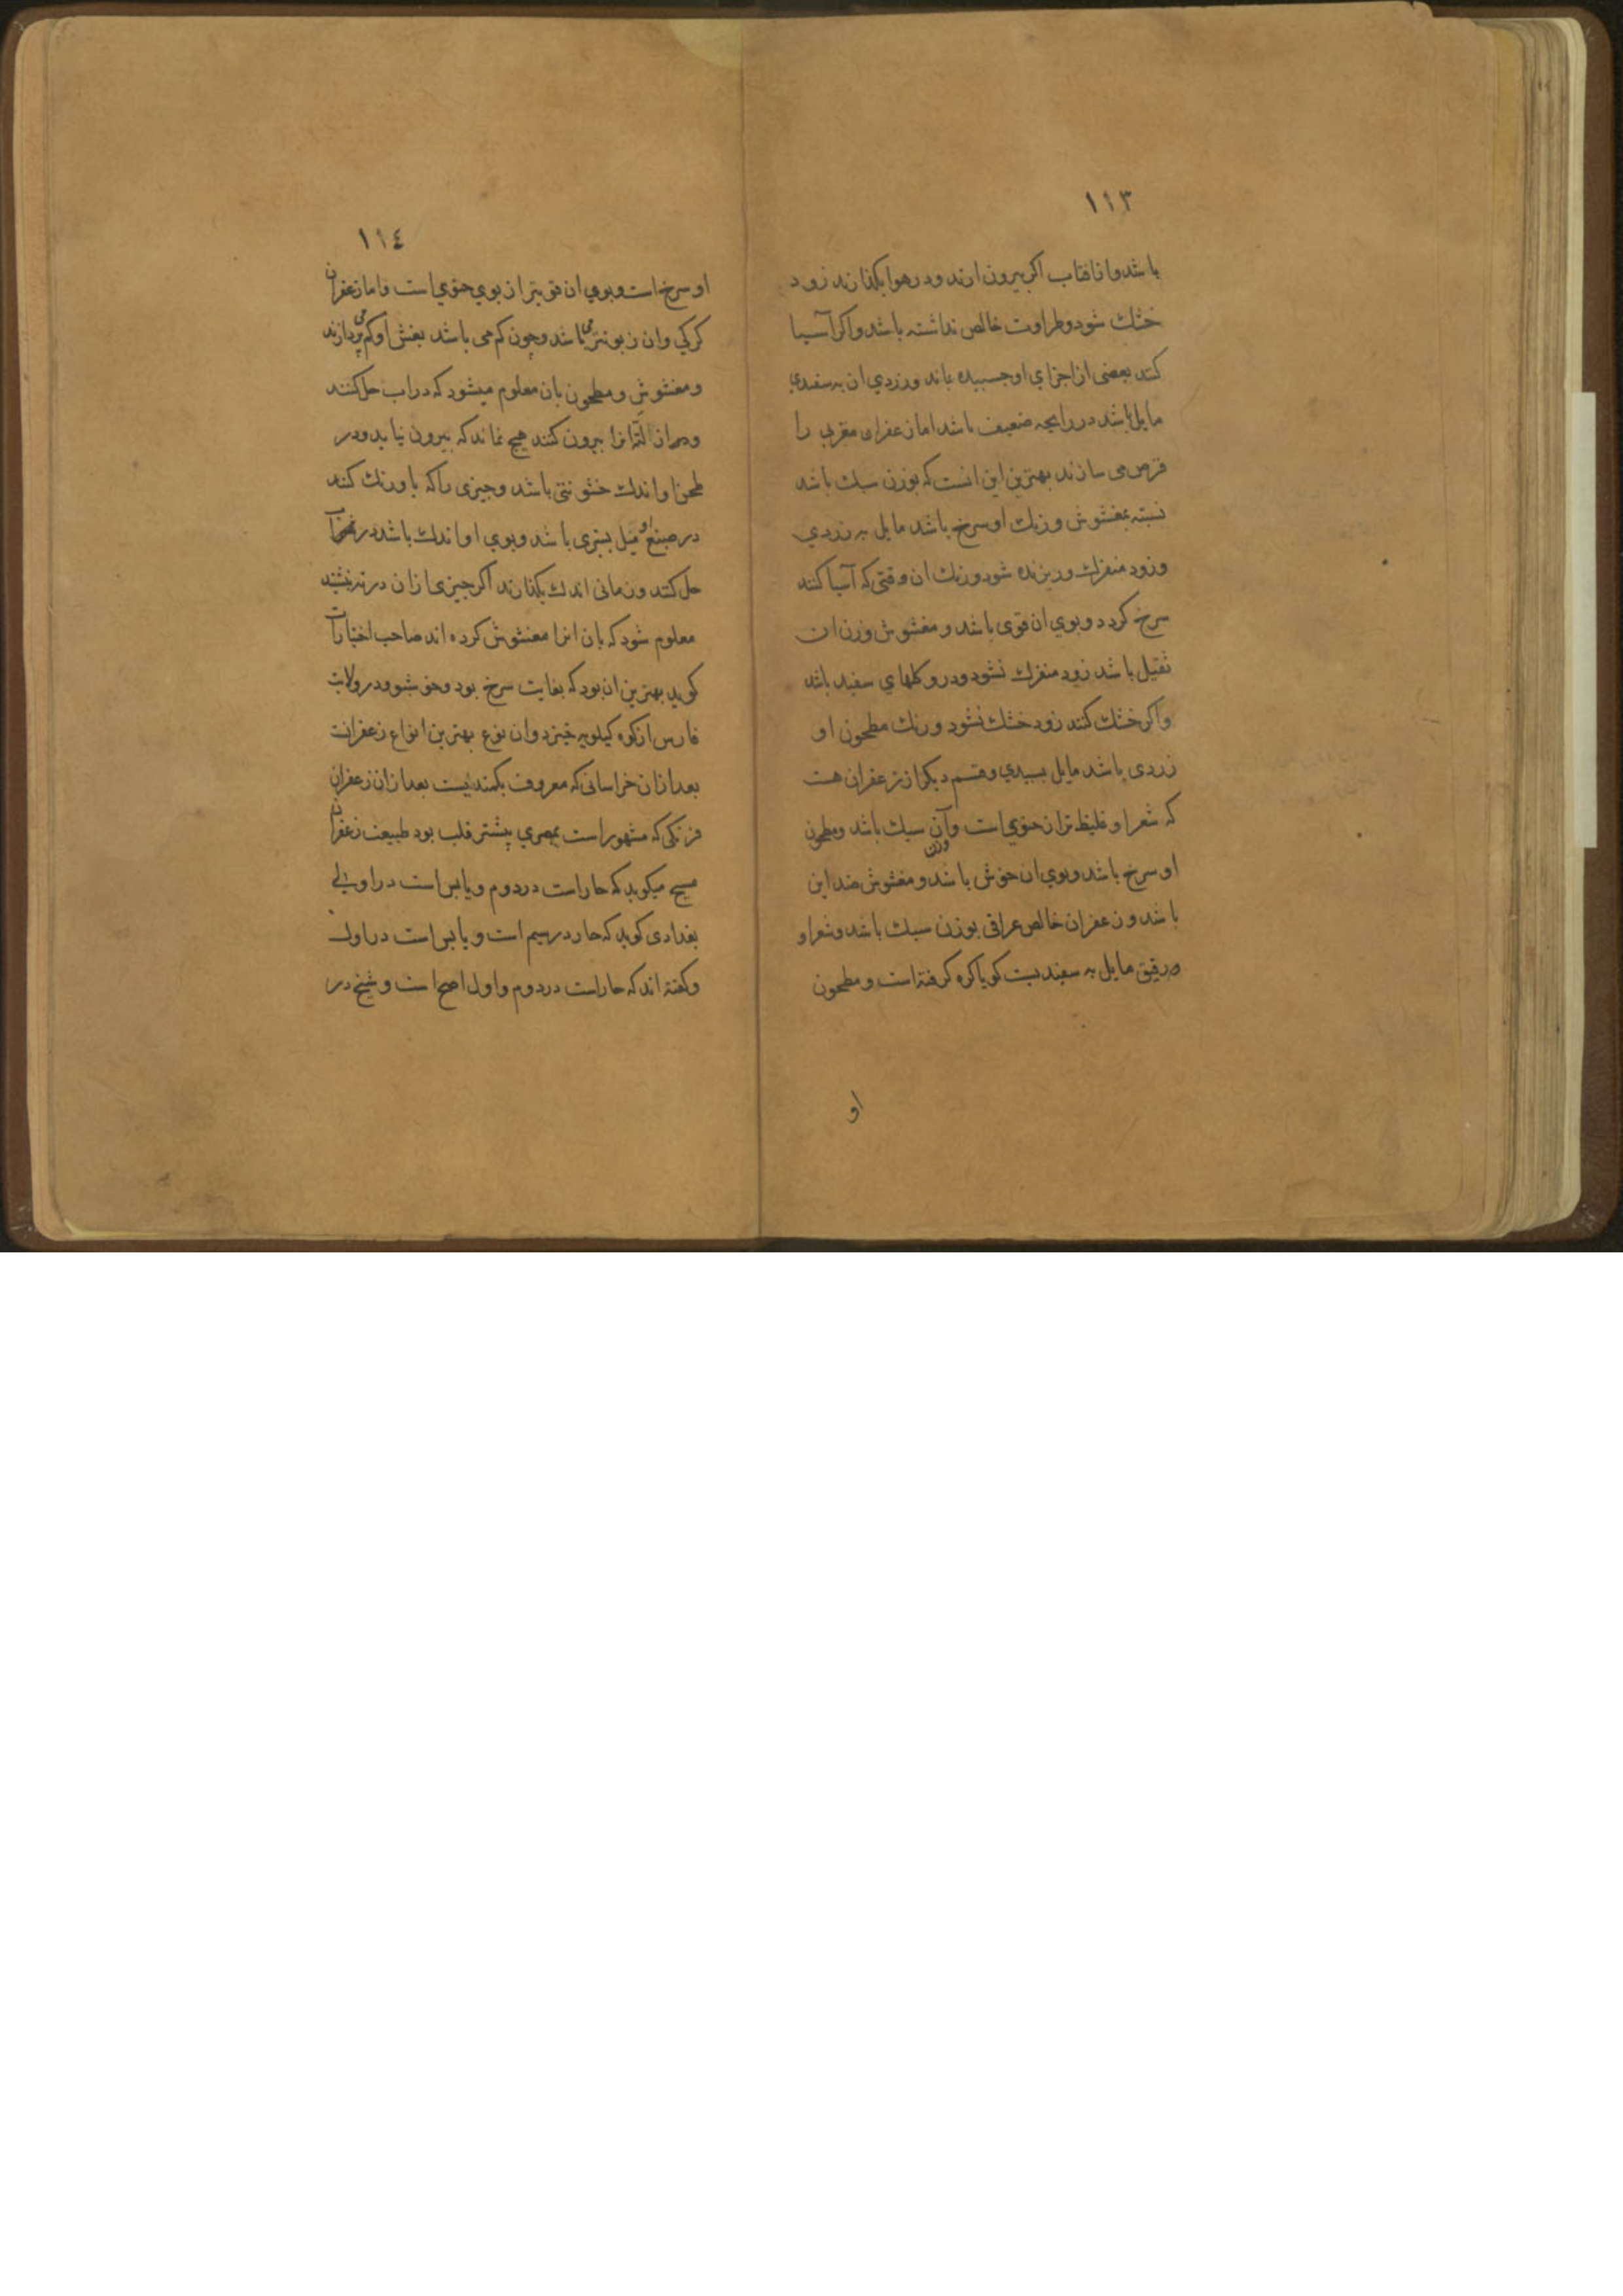 ١١٣
باشد و از افتاب اکر بیرون ارند و در هوا بکذارند زود
خشك شود و طراوت خالص نداشته باشد و اکر آسیا
کنند بعضی از اجزاي او جسبیده باند و زردي ان به سفیدي
مایل باشد در رایحه ضعیف باشد اما زعفران مغربي را
قرص می سازند بهترین این انست که بوزن سبك باشد
نسبته بمغشوش و رنك او سرخ باشد مایل به زردي
و زود منفرك و ریزنده شود و رنك ان وقتی که آسیا کنند
سرخ کردد و بوي ان قوی باشد و مغشوش وزن ان
ثقیل باشد زود منفرك نشود و در و کلهاي سفید باشد
و اکر خشك کنند زود خشك نشود و رنك مطحون او
زردی باشد مایل بسپیدي و قسم دیکر از زعفران هست
که شعر او غلیظ تر از خویي است و آن وزن سبك باشد و مطحون
او سرخ باشد و بوي ان خوش باشد و مغشوش ضد این
باشد و زعفران خالص عراقی بوزن سبك باشد و شعر او
رقیق مایل به سفیدیست کویا کره کرفته است و مطحون
او
١١٤
او سرخ است و بوي ان قویتر از بوي خویي است فاما زعفران
کرکي وان زبونتر می باشد و چون کم می باشد بغش او کم می پردازند
و مغشوش و مطحون بان معلوم میشود که در اب حل کنند
و انرا بیرون کنند هیچ نماند که بیرون نیاید و در
طحن او اندك خشونتی باشد و جیزی را که باو رنك کنند
در صبغ او میل بسبزی باشد و بوي او اندك باشد در
حل کنند و زمانی اندك بکذارند اکر جیزی ازان در ته نشیند
معلوم شود که بان انرا مغشوش کرده اند صاحب اختیارات
کوید بهترین ان بود که بغایت سرخ بود و خوشبو و در ولایت
فارس از کوه کیلویه خیزد و ان نوع بهترین انواع زعفرانست
بعد ازان خراسانی که معروف بکمندیست بعد ازان زعفران
فرنکی که مشهور است بمصري پیشتر قلب بود طبیعت زعفران
مسیح میکوید که حار است در دوم و یابس است در اولی
بغدادی کوید که حار در سیم است و یابس است در اول
و کفته اند که حار است در دوم و اول اصح است و شیخ در